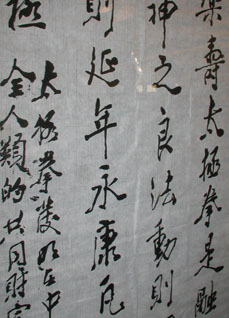 樂壽太極拳是融
神之良法動則
則延年永康凡
極
太極拳發明在中
全人類的共同財富